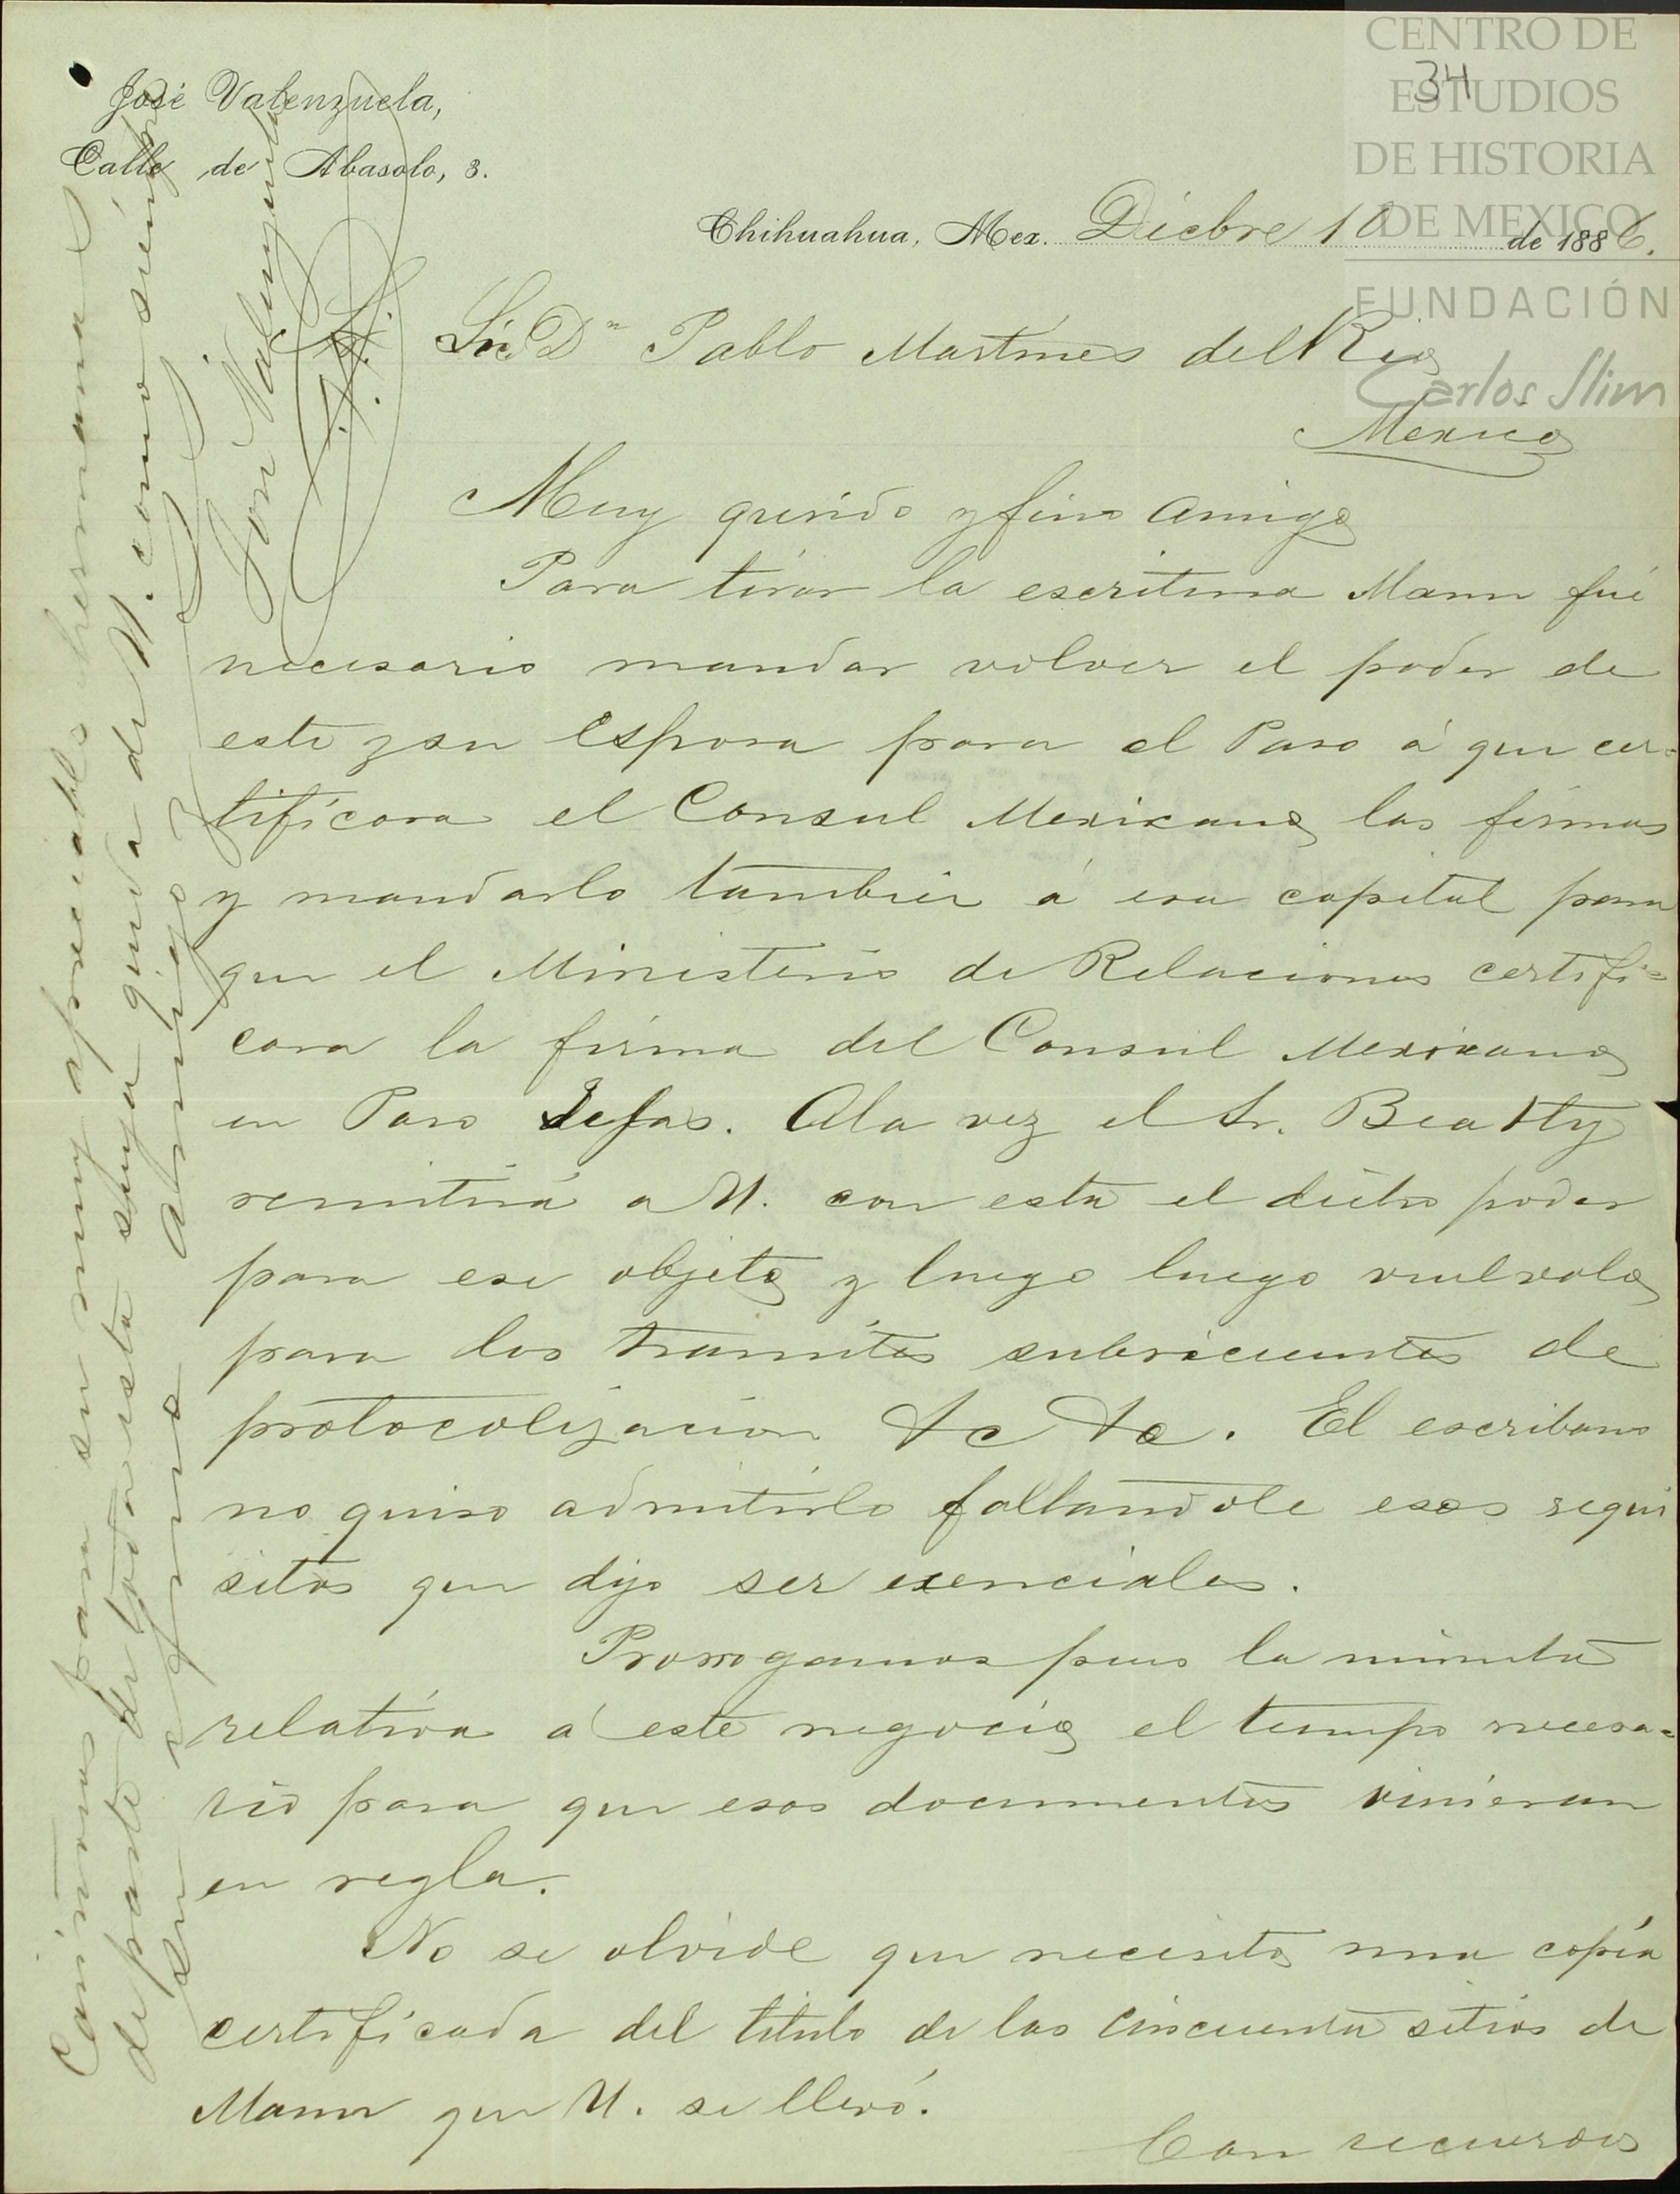 CENTRO DE
ESTUDIOS
DE HISTORIA
DE MEXICO
FUNDACIÓN
Carlos Slim
34
José Valenzuela,
Calle de Abasolo, 3.
Chihuahua, Mex. Dicbre 10 de 1886.
Lic. Dn Pablo Martines del Rio
Mexico
Muy querido y fino amigo
Para tirar la escritura Mann fué
necesario mandar volver el poder de
este y su Espora para el Paso á que cer-
tificara el Consul Mexicano las firmas
y mandarlo tambien á esa capital para
que el Ministerio de Relaciones certifi-
cara la firma del Consul Mexicano
en Paso Tejas. A la vez el Sr. Beatty
remitirá a U. con esta el dicho poder
para ese objeto y luego luego vuelvalo
para los tramites subsicuentes de
protocolizacion &c &c. El escribano
no quiso admitirlo faltandole esos requi
sitos que dijo ser esenciales.
Prorrogamos pues la minuta
relativa á este negocio el tiempo necesa-
rio para que esos documentos vinieran
en regla.
No se olvide que necesito una copia
certificada del titulo de los cincuenta sitios de
Mann que U. se llevó.
Con recuerdos
Cariñosos para su muy apreciable hermana
de parte de toda esta suya queda de U. como siempre
su afmo amigo
José Valenzuela